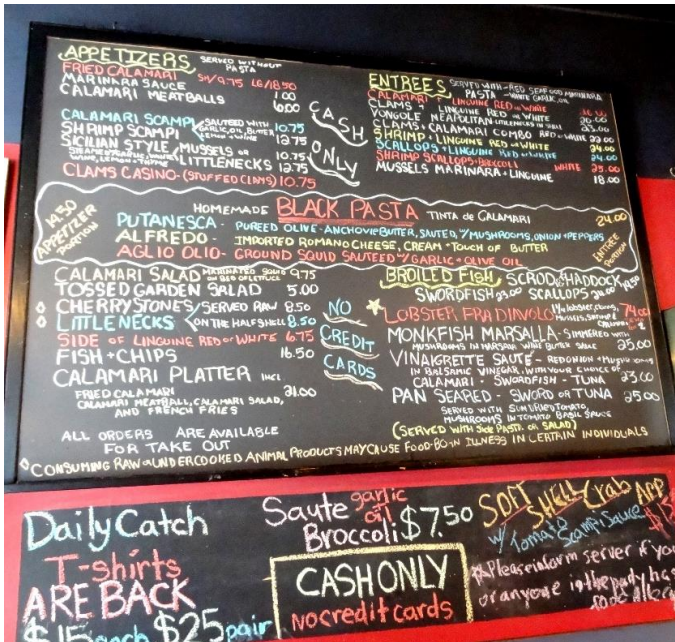 APPETIZERS SERVED WITHOUT PASTA
FRIED CALAMARI SM/9.75 LG/18.50
MARINARA SAUCE 1.00
CALAMARI MEATBALLS 6.00
CALAMARI SCAMPI
SHRIMP SCAMPI
SAUTEED WITH
GARLIC, OIL, BUTTER
LEMON & WINE
10.75
12.75
SICILIAN STYLE MUSSELS OR 10.75
LITTLENECKS 12.75
WINE, LEMON & THYME
CLAMS CASINO (STUFFED CLAMS) 10.75
CASH
ONLY
ENTREES SERVED WITH RED SEAFOOD MARINARA
PASTA WHITE GARLIC OIL
CALAMARI LINGUINE RED OR WHITE
CLAMS LINGUINE RED OR WHITE 20.00
VONGOLE NEAPOLITAN LITTLENECKS IN SHELL 23.00
CLAMS & CALAMARI COMBO RED OR WHITE 22.00
SHRIMP LINGUINE RED OR WHITE 24.00
SCALLOPS LINGUINE RED OR WHITE 24.00
SHRIMP SCALLOPS BROCCOLI WHITE 25.00
MUSSELS MARINARA LINGUINE 18.00
19.50
APPETIZER
PORTION
HOMEMADE BLACK PASTA TINTA de CALAMARI
24.00
ENTREE
PORTION
PUTANESCA - PUREED OLIVE - ANCHOVIE BUTTER, SAUTED, W/ MUSHROOMS, ONION + PEPPERS
ALFREDO - IMPORTED ROMANO CHEESE, CREAM + TOUCH OF BUTTER
AGLIO OLIO - GROUND SQUID SAUTEED W/ GARLIC + OLIVE OIL
CALAMARI SALAD MARINATED SQUID ON BED OF LETTUCE 9.75
TOSSED GARDEN SALAD 5.00
CHERRYSTONES SERVED RAW 8.50
LITTLENECKS ON THE HALF SHELL 8.50
SIDE OF LINGUINE RED OR WHITE 6.75
FISH + CHIPS 16.50
CALAMARI PLATTER INCL
FRIED CALAMARI 21.00
CALAMARI MEATBALL, CALAMARI SALAD,
AND FRENCH FRIES
ALL ORDERS ARE AVAILABLE
FOR TAKE OUT
NO
CREDIT
CARDS
BROILED FISH SCROD & HADDOCK 19.50
SWORDFISH 23.00 SCALLOPS
LOBSTER FRA DIAVOLO
MONKFISH MARSALLA - SIMMERED WITH
MUSHROOMS IN MARSALA WINE BUTTER SAUCE 25.00
VINAIGRETTE SAUTE - RED ONION +
IN BALSAMIC VINEGAR, WITH YOUR CHOICE OF
CALAMARI - SWORDFISH - TUNA 23.00
PAN SEARED - SWORD OR TUNA 25.00
SERVED WITH SUNDRIED TOMATO,
MUSHROOMS IN TOMATO BASIL SAUCE
(SERVED WITH SIDE PASTA OR SALAD)
CONSUMING RAW OR UNDERCOOKED ANIMAL PRODUCTS MAY CAUSE FOOD-BORN ILLNESS IN CERTAIN INDIVIDUALS
Daily Catch
T-shirts
ARE BACK
$15 each $25 pair
Saute garlic oil
Broccoli $7.50
CASH ONLY
no credit cards
SOFT SHELL Crab APP
w/ Tomato
Scampi Sauce
Please inform server if you
or anyone in the party has